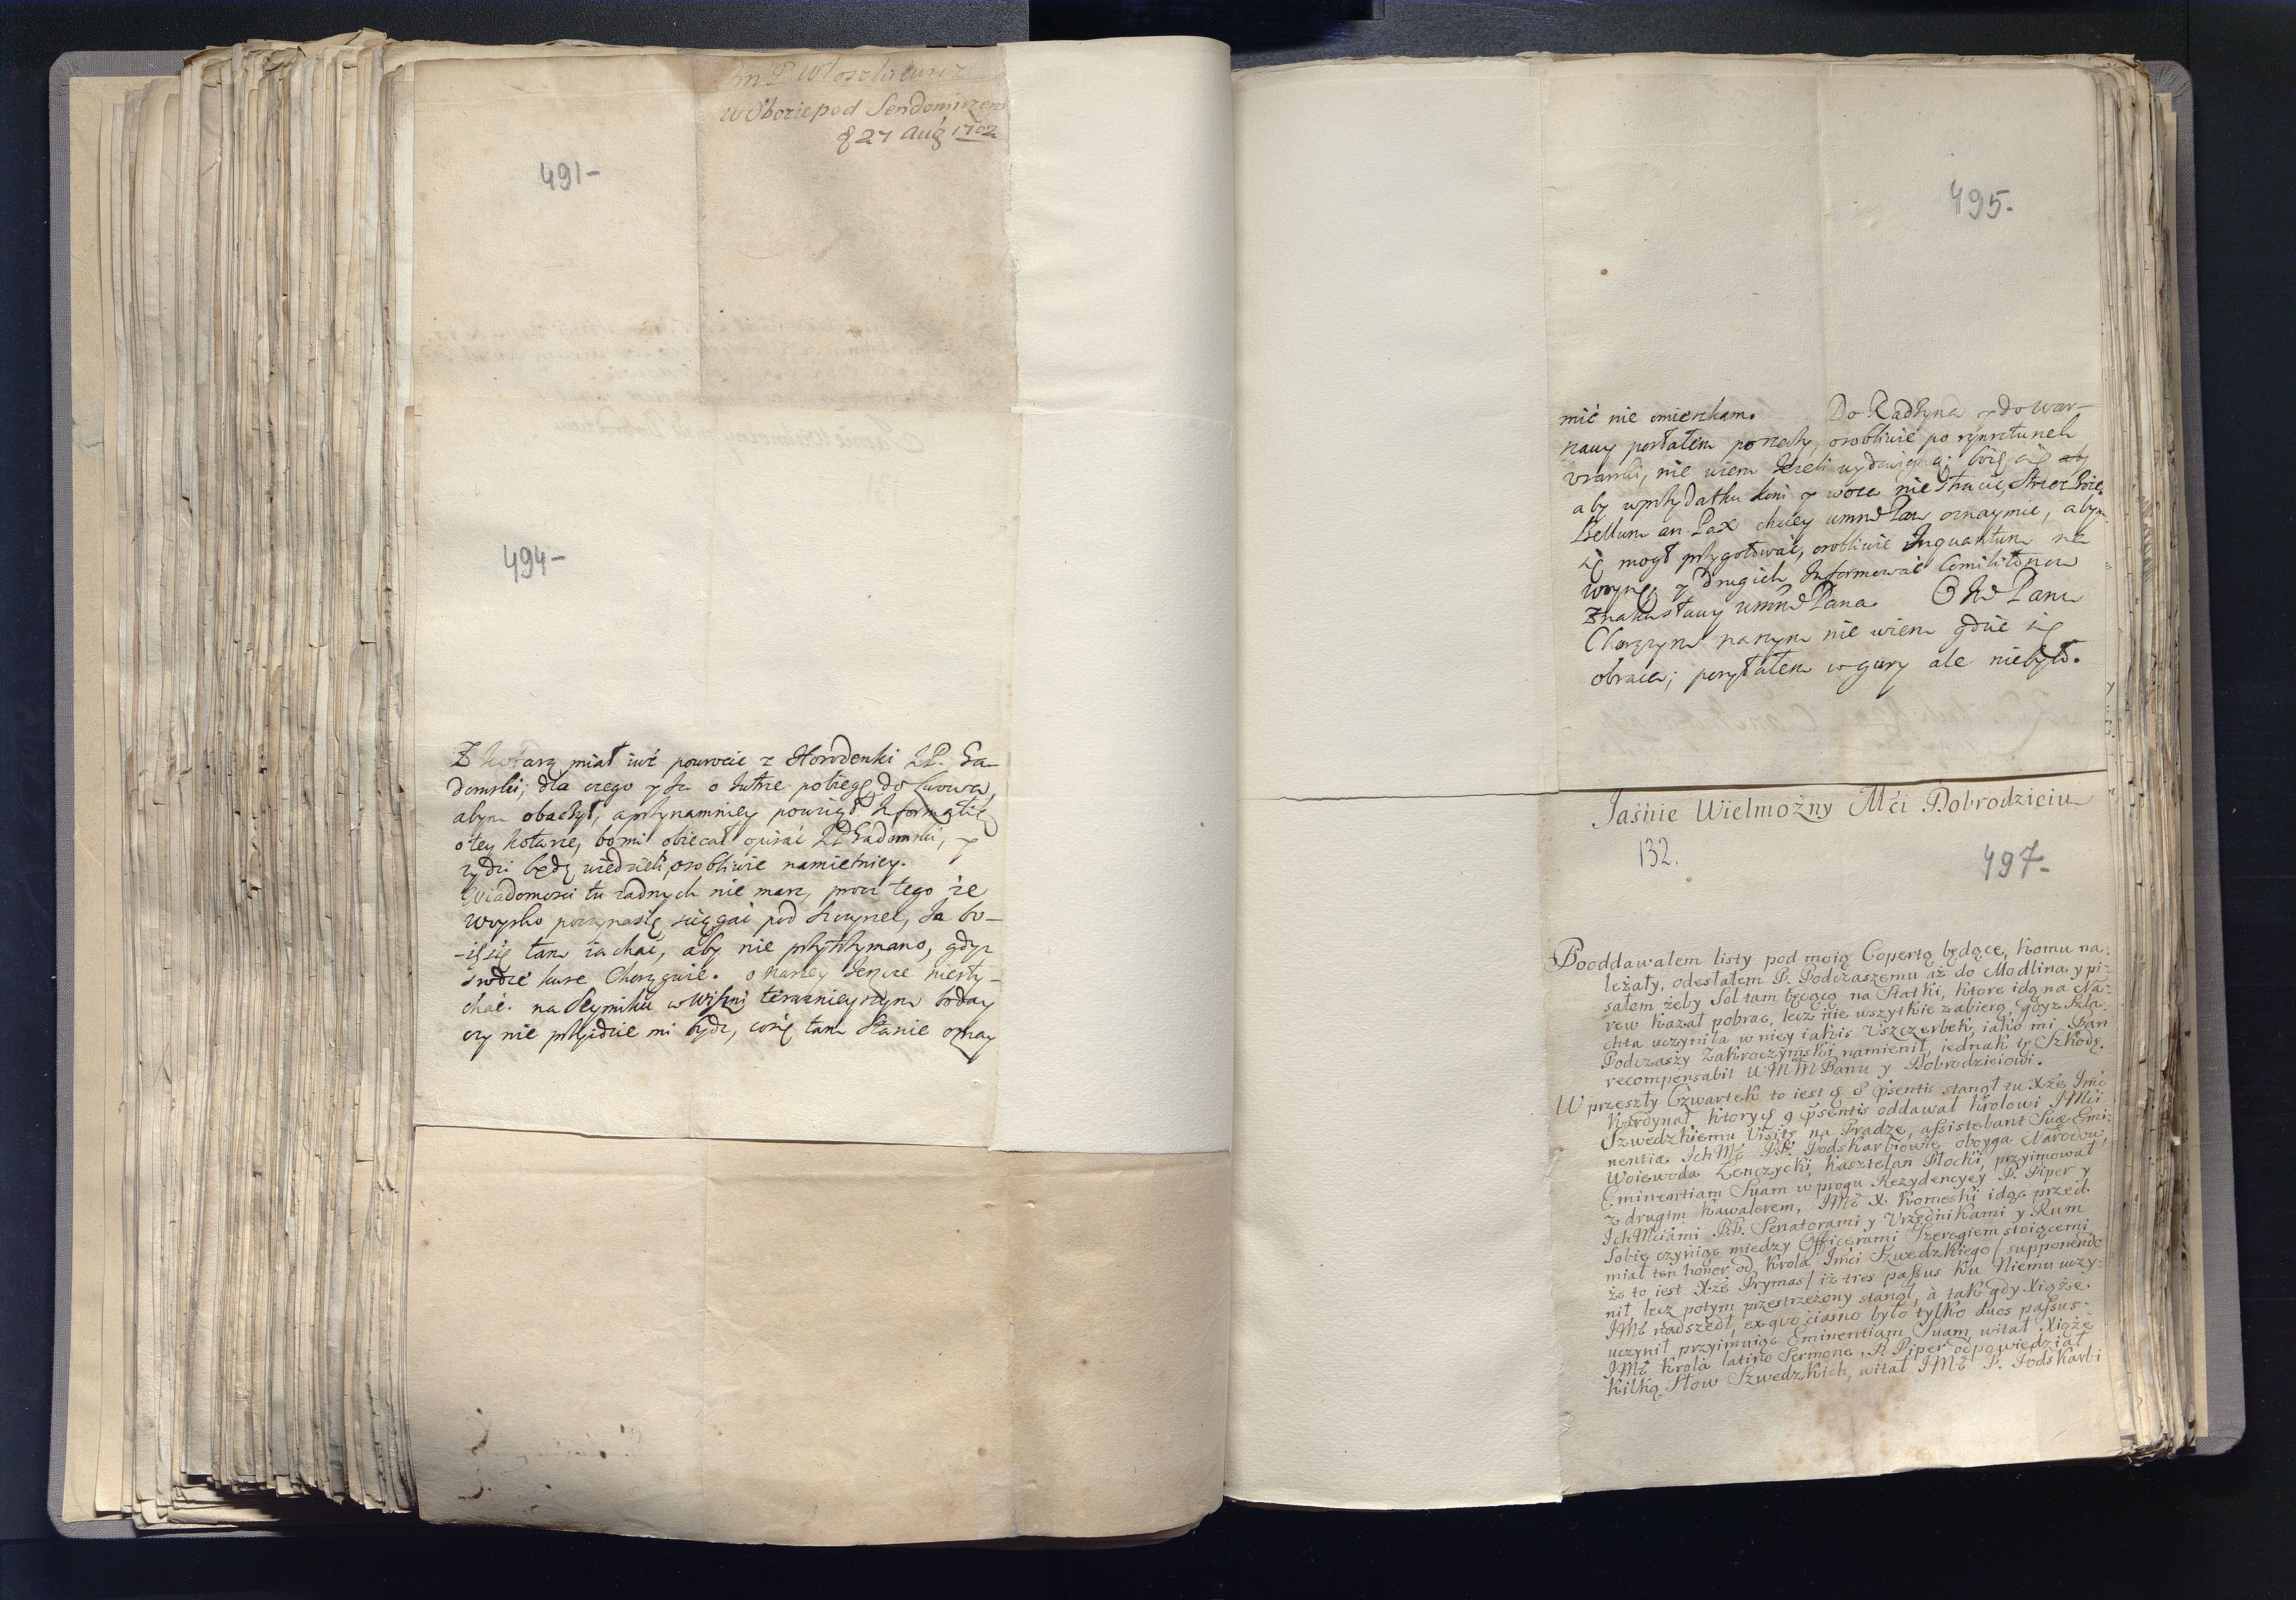 Im P Włoszkiewicz
w Obozie pod Sendomirzem
d 27 Aug 1702
491-
494-
Z Kotarą miał iuż powrocic z Horodenki IP. Ga-
domski; dla czego y Ja o Jutrze pobiegę do Lwowa,
abym obaczył, a przynamniey powziął Informatią
o tey kotarze, bo mi obiecał opisać IP Gadomski, y
żydzi będą wiedzieli, osobliwie namietnicy.
Wiadomosci tu żadnych nie masz, procz tego że
Woysko poczynasię sciągać pod, Ja bo-
-ię się tam iachać, aby nie przytrzymano, gdyz
kure Chorągwie. o naszey Jeszcze niesły-
chać. na Seymiku w Wiszni teraznieyszym boday
czy nie przyidzie mi bydz, cosię tam stanie oznay
495-
mić nie omieszkam. Do Radzyna y do War-
szawy posłałem po rzeczy, osobliwie po rynsztunek
usarski, nie wiem Jezeli boię się aby
aby wprzydatku koni y woza nie stracić, strzeż Boże.
Bellum an Pax chciey WMM Pan oznaymic, abym
się mogł przygotować, osobliwie Inquantum na
woynę, y drugich Informować Comilitonow
Znaku sławy WMM Pana. O IP Panu
Chorązym naszym nie wiem gdzie się
obraca; posyłałem w gury ale niebyło.
Jaśnie Wielmożny Mći Dobrodzieiu
132.
497-
Pooddawałem listy pod moią Copertą będące, komu na-
leżały, odesłałem P. Podczaszemu aż do Modlina y pi-
sałem żeby Sol tam będącą na Statki, ktore idą na Na-
rew kazał pobrac, lecz nie wszytkie zabierą, gdyz Szla-
chta uczyniła w niey iakis Uszczerbek, iako mi Pan
Podczaszy Zakroczymski namienił, iednak tę Szkodę
recompensabit WMM Panu y Dobrodzieiowi.
W przeszły Czwartek to iest d 8 psentis stanął tu Xże Imć
Kardynał, ktory d 9 psentis oddawał Krolowi JMći
Szwedzkiemu Visitę na Pradze, assistebant Suæ Emi-
nentiæ Ich Mć PP. Podskarbiowie oboyga Narodow,
Woiewoda Łenczycki, Kasztelan Płocki, przyimował
Eminentiam Suam w progu Rezydencyey P. Piper y
z drugim Kawalerem, JMć X. Komeski idąc przed
Ich Mciami PP. Senatorami y Urzędnikami y Rum
Sobie czyniąc miedzy Officerami Szeregiem stoiącemi
miał ten honor od Krola Imći Szwedzkiego /supponendo
że to iest Xże Prymas/ iż tres passus ku Niemu uczy-
nił, lecz potym przestrzeżony stanął, à tak gdy Xiąże
JMć nadszedł, ex quo ciasno było tylko duos passus
uczynił przyimuiąc Eminentiam Suam, witał Xiąże
JMć Krola latino Sermone, P. Piper odpowiedział
kilką Słow Szwedzkich, witał JMć P. Podskarbi